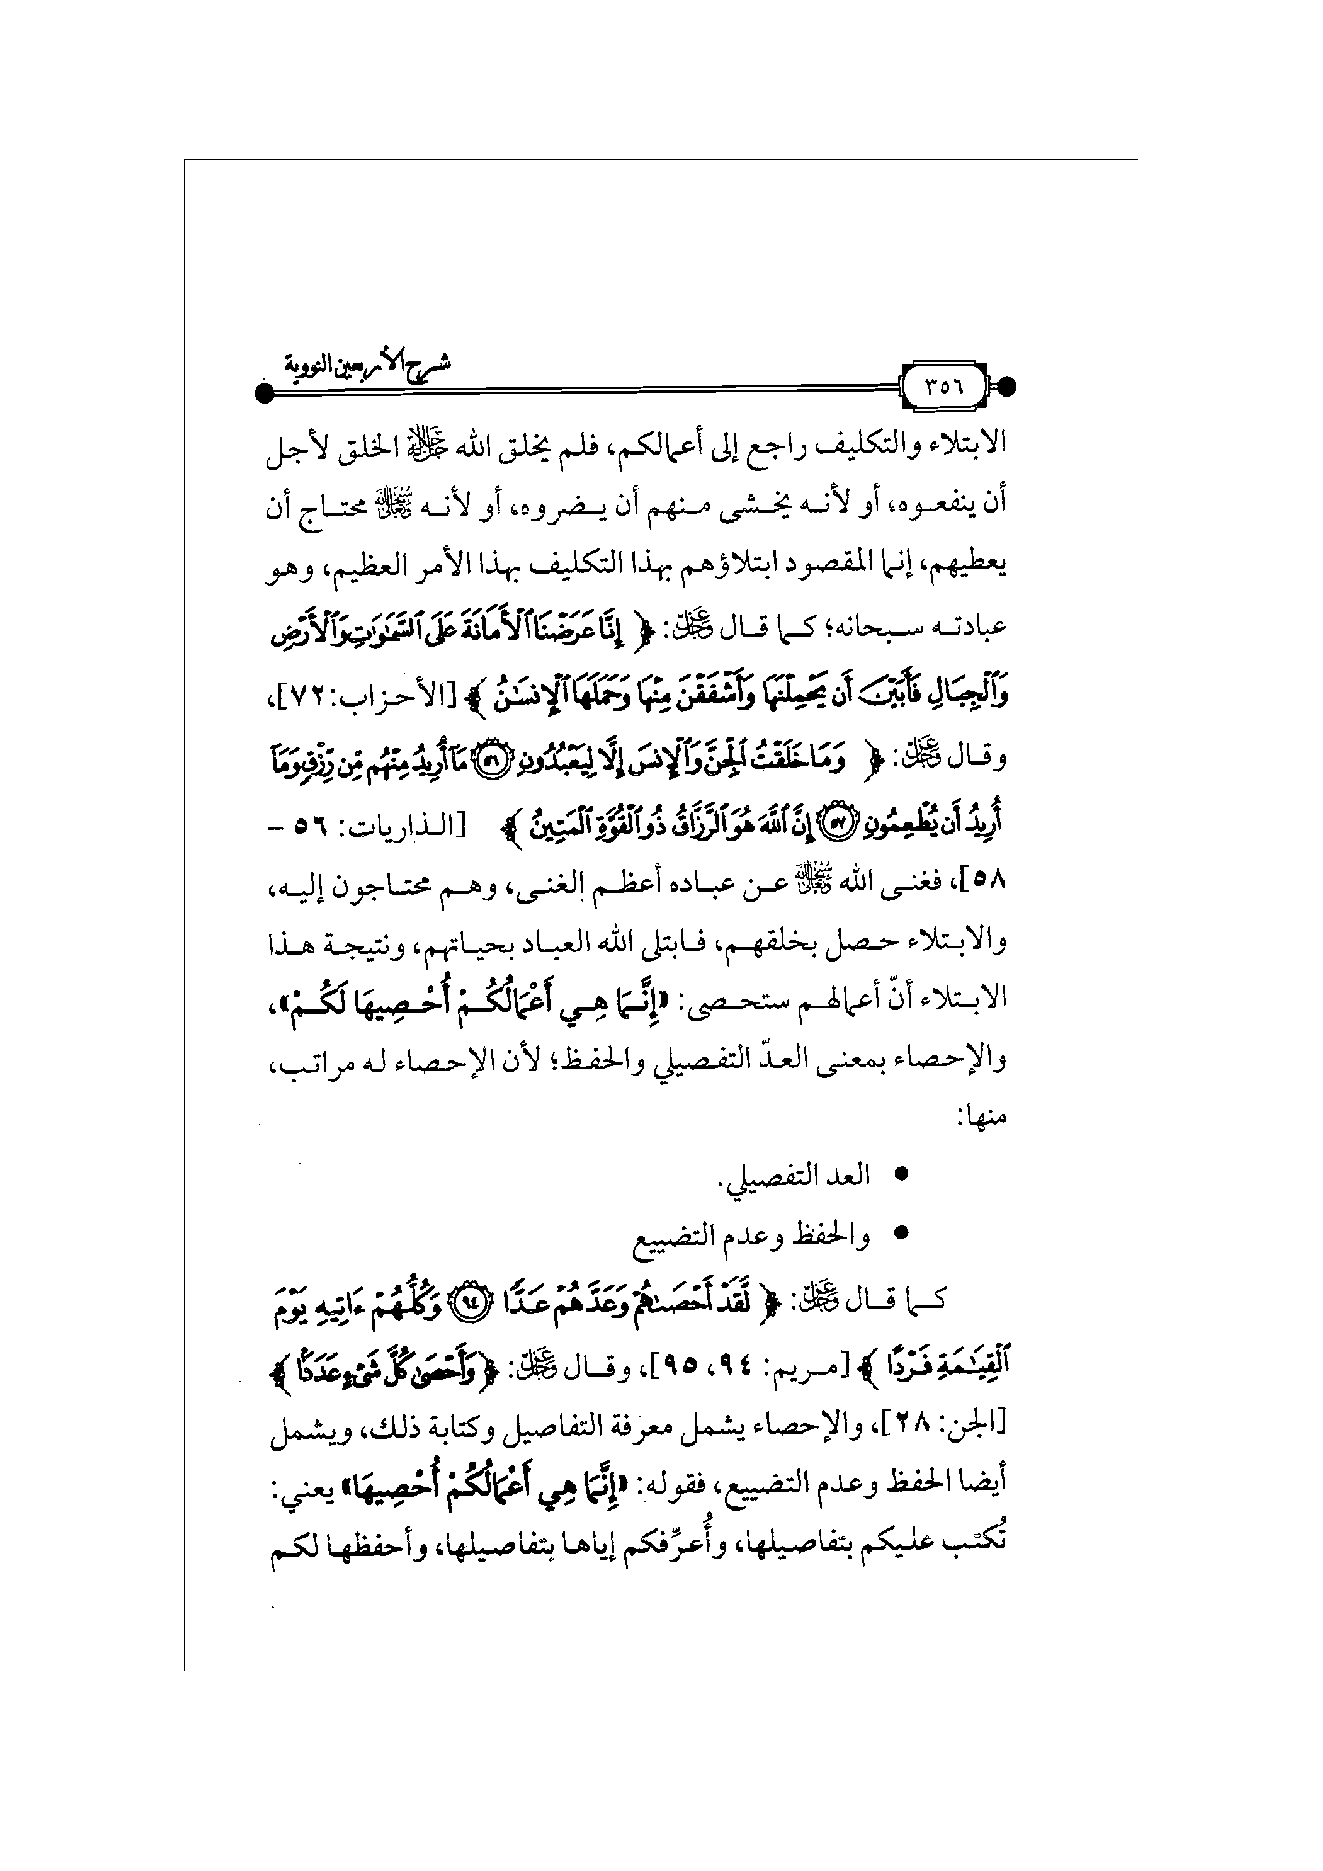 شرح الأربعين النووية
٣٥٦
الابتلاء والتكليف راجع إلى أعمالكم، فلم يخلق الله جل جلاله الخلق لأجل
أن ينفعوه، أو لأنه يخشى منهم أن يضروه، أو لأنه محتاج أن
يعطيهم، إنما المقصود ابتلاؤهم بهذا التكليف بهذا الأمر العظيم، وهو
عبادته سبحانه؛ كما قال عز وجل: ﴿ إِنَّا عَرَضْنَا ٱلْأَمَانَةَ عَلَى ٱلسَّمَٰوَٰتِ وَٱلْأَرْضِ
وَٱلْجِبَالِ فَأَبَيْنَ أَن يَحْمِلْنَهَا وَأَشْفَقْنَ مِنْهَا وَحَمَلَهَا ٱلْإِنسَٰنُ ﴾ [الأحزاب: ٧٢]،
وقال عز وجل: ﴿ وَمَا خَلَقْتُ ٱلْجِنَّ وَٱلْإِنسَ إِلَّا لِيَعْبُدُونِ ٥٦ مَآ أُرِيدُ مِنْهُم مِّن رِّزْقٍ وَمَآ
أُرِيدُ أَن يُطْعِمُونِ ٥٧ إِنَّ ٱللَّهَ هُوَ ٱلرَّزَّاقُ ذُو ٱلْقُوَّةِ ٱلْمَتِينُ ﴾ [الذاريات: ٥٦ –
٥٨]، فغنى الله عن عباده أعظم الغنى، وهم محتاجون إليه،
والابتلاء حصل بخلقهم، فابتلى الله العباد بحياتهم، ونتيجة هذا
الابتلاء أنّ أعمالهم ستحصى: «إِنَّمَا هِي أَعْمَالُكُمْ أُحْصِيهَا لَكُمْ»،
والإحصاء بمعنى العدّ التفصيلي والحفظ؛ لأن الإحصاء له مراتب،
منها:
● العد التفصيلي.
● والحفظ وعدم التضييع
كما قال عز وجل: ﴿ لَّقَدْ أَحْصَىٰهُمْ وَعَدَّهُمْ عَدًّا ٩٤ وَكُلُّهُمْ ءَاتِيهِ يَوْمَ
ٱلْقِيَٰمَةِ فَرْدًا ﴾ [مريم: ٩٤، ٩٥]، وقال عز وجل: ﴿ وَأَحْصَىٰ كُلَّ شَىْءٍ عَدَدًۢا ﴾
[الجن: ٢٨]، والإحصاء يشمل معرفة التفاصيل وكتابة ذلك، ويشمل
أيضا الحفظ وعدم التضييع، فقوله: «إِنَّمَا هِي أَعْمَالُكُمْ أُحْصِيهَا» يعني:
تُكتب عليكم بتفاصيلها، وأُعرِّفكم إياها بتفاصيلها، وأحفظها لكم